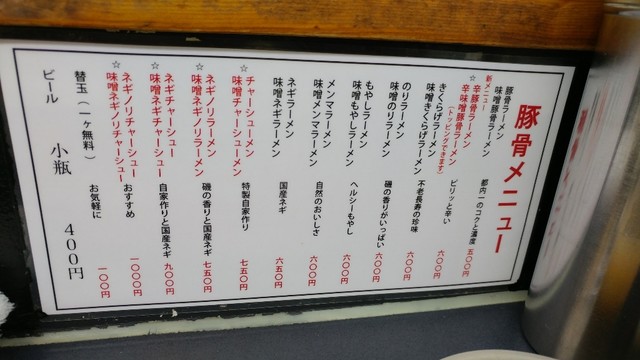 豚骨メニュー
豚骨ラーメン
味噌豚骨ラーメン 都内一のコクと濃度 五〇〇円
新メニュー
☆辛豚骨ラーメン
辛味噌豚骨ラーメン ピリッと辛い 六〇〇円
(トッピングできます)
きくらげラーメン
味噌きくらげラーメン 不老長寿の珍味 六〇〇円
のりラーメン
味噌のりラーメン 磯の香りがいっぱい 六〇〇円
もやしラーメン
味噌もやしラーメン ヘルシーもやし 六〇〇円
メンマラーメン
味噌メンマラーメン 自然のおいしさ 六〇〇円
ネギラーメン
味噌ネギラーメン 国産ネギ 六五〇円
☆チャーシューメン
味噌チャーシューメン 特製自家作り 七五〇円
☆ネギノリラーメン
味噌ネギノリラーメン 磯の香りと国産ネギ 七五〇円
☆ネギチャーシュー
味噌ネギチャーシュー 自家作りと国産ネギ 九〇〇円
☆ネギノリチャーシュー
味噌ネギノリチャーシュー おすすめ 一〇〇〇円
替玉(一ヶ無料) お気軽に 一〇〇円
ビール 小瓶 400円